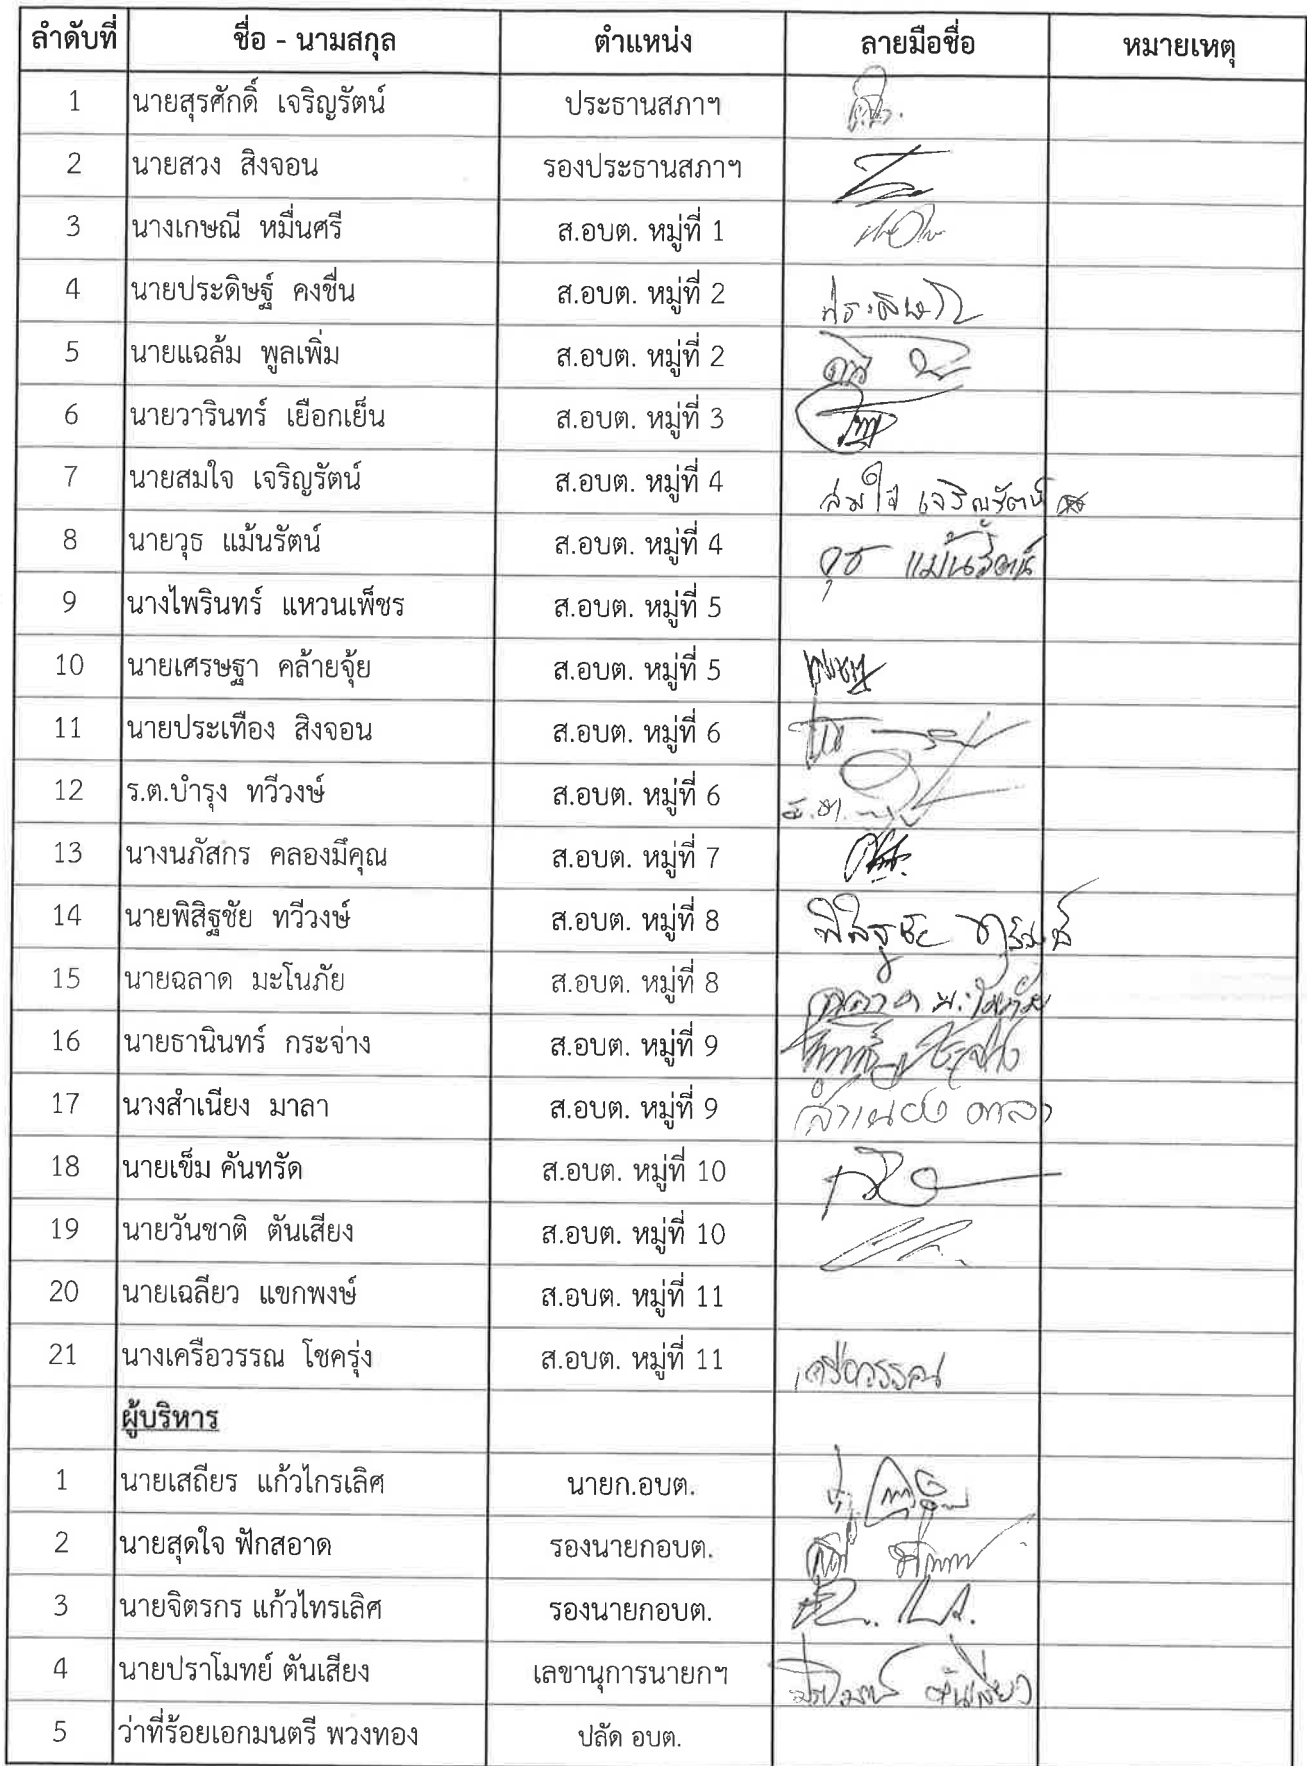 ลำดับที่ ชื่อ - นามสกุล ตำแหน่ง ลายมือชื่อ หมายเหตุ
1 นายสุรศักดิ์ เจริญรัตน์ ประธานสภาฯ
2 นายสวง สิงจอน รองประธานสภาฯ
3 นางเกษณี หมื่นศรี ส.อบต. หมู่ที่ 1
4 นายประดิษฐ์ คงชื่น ส.อบต. หมู่ที่ 2 ประดิษฐ์
5 นายแฉล้ม พูลเพิ่ม ส.อบต. หมู่ที่ 2
6 นายวารินทร์ เยือกเย็น ส.อบต. หมู่ที่ 3
7 นายสมใจ เจริญรัตน์ ส.อบต. หมู่ที่ 4 สมใจ เจริญรัตน์
8 นายวุธ แม้นรัตน์ ส.อบต. หมู่ที่ 4 วุธ แม้นรัตน์
9 นางไพรินทร์ แหวนเพ็ชร ส.อบต. หมู่ที่ 5
10 นายเศรษฐา คล้ายจุ้ย ส.อบต. หมู่ที่ 5
11 นายประเทือง สิงจอน ส.อบต. หมู่ที่ 6
12 ร.ต.บำรุง ทวีวงษ์ ส.อบต. หมู่ที่ 6
13 นางนภัสกร คลองมีคุณ ส.อบต. หมู่ที่ 7
14 นายพิสิฐชัย ทวีวงษ์ ส.อบต. หมู่ที่ 8 พิสิฐชัย
15 นายฉลาด มะโนภัย ส.อบต. หมู่ที่ 8 ฉลาด มะโนภัย
16 นายธานินทร์ กระจ่าง ส.อบต. หมู่ที่ 9
17 นางสำเนียง มาลา ส.อบต. หมู่ที่ 9 สำเนียง มาลา
18 นายเข็ม คันทรัด ส.อบต. หมู่ที่ 10
19 นายวันชาติ ตันเสียง ส.อบต. หมู่ที่ 10
20 นายเฉลียว แขกพงษ์ ส.อบต. หมู่ที่ 11
21 นางเครือวรรณ โชครุ่ง ส.อบต. หมู่ที่ 11 เครือวรรณ
ผู้บริหาร
1 นายเสถียร แก้วไกรเลิศ นายก.อบต.
2 นายสุดใจ ฟักสอาด รองนายกอบต.
3 นายจิตรกร แก้วไทรเลิศ รองนายกอบต.
4 นายปราโมทย์ ตันเสียง เลขานุการนายกฯ ปราโมทย์ ตันเสียง
5 ว่าที่ร้อยเอกมนตรี พวงทอง ปลัด อบต.